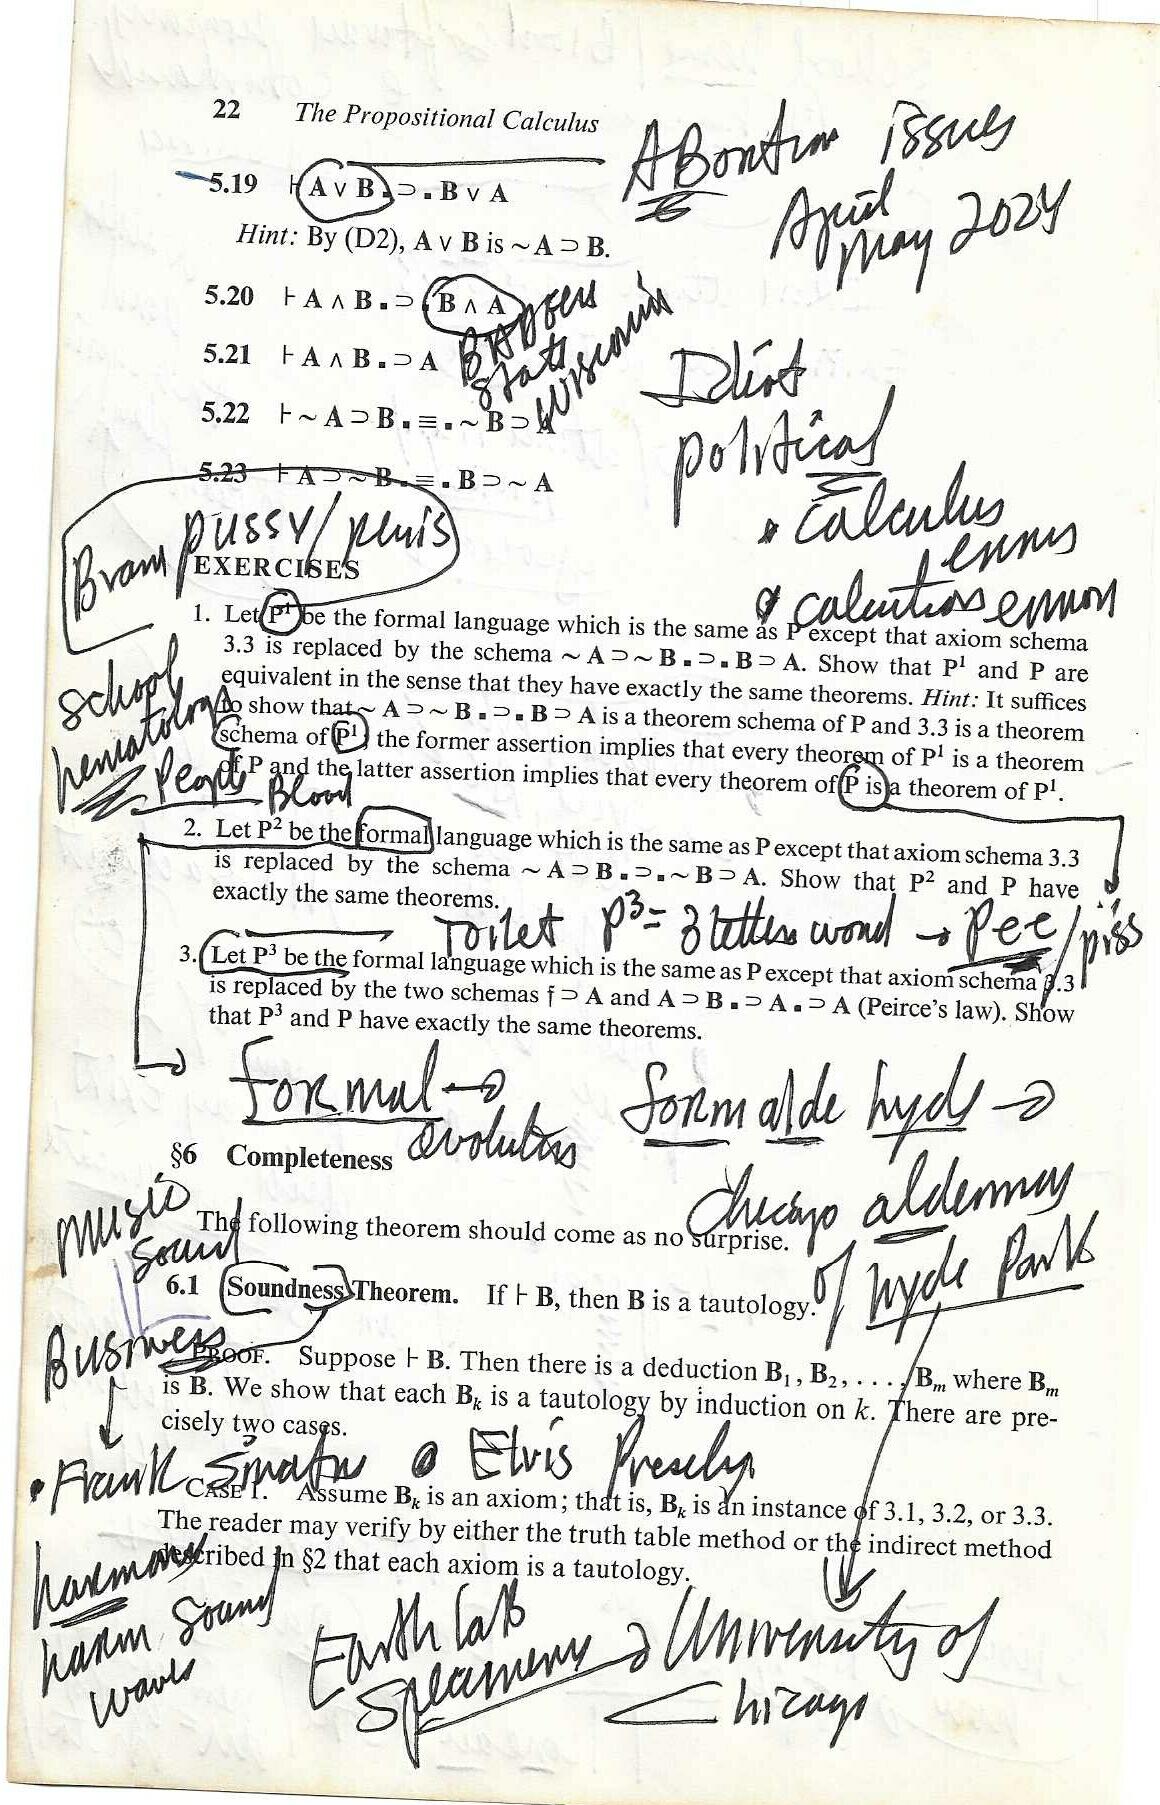 22 The Propositional Calculus
ABortion issues
April
May 2024
5.19 ⊦ A ∨ B ▪ ⊃ ▪ B ∨ A
Hint: By (D2), A ∨ B is ~ A ⊃ B.
5.20 ⊦ A ∧ B ▪ ⊃ ▪ B ∧ A
BADGER
State
Wisconsin
5.21 ⊦ A ∧ B ▪ ⊃ A
Idiot
political
5.22 ⊦ ~ A ⊃ B ▪ ≡ ▪ ~ B ⊃ A
5.23 ⊦ A ⊃ ~ B ▪ ≡ ▪ B ⊃ ~ A
• calculus
errors
calculations error
pussy/penis
EXERCISES
1. Let P¹ be the formal language which is the same as P except that axiom schema
3.3 is replaced by the schema ~ A ⊃ ~ B ▪ ⊃ ▪ B ⊃ A. Show that P¹ and P are
equivalent in the sense that they have exactly the same theorems. Hint: It suffices
to show that ~ A ⊃ ~ B ▪ ⊃ ▪ B ⊃ A is a theorem schema of P and 3.3 is a theorem
schema of P¹; the former assertion implies that every theorem of P¹ is a theorem
of P and the latter assertion implies that every theorem of P is a theorem of P¹.
School
hematology
People Blood
2. Let P² be the formal language which is the same as P except that axiom schema 3.3
is replaced by the schema ~ A ⊃ B ▪ ⊃ ▪ ~ B ⊃ A. Show that P² and P have
exactly the same theorems.
Toilet P³ = 3 letters word → Pee/piss
3. Let P³ be the formal language which is the same as P except that axiom schema 3.3
is replaced by the two schemas f ⊃ A and A ⊃ B ▪ ⊃ A ▪ ⊃ A (Peirce's law). Show
that P³ and P have exactly the same theorems.
Formal →
formaldehyde →
§6 Completeness
Chicago alderman
of Hyde Park
Music
Sound
The following theorem should come as no surprise.
6.1 Soundness Theorem. If ⊦ B, then B is a tautology.
Business
PROOF. Suppose ⊦ B. Then there is a deduction B₁, B₂, . . . , Bₘ where Bₘ
is B. We show that each Bₖ is a tautology by induction on k. There are pre-
cisely two cases.
• Frank Sinatra • Elvis Presley
CASE 1. Assume Bₖ is an axiom; that is, Bₖ is an instance of 3.1, 3.2, or 3.3.
The reader may verify by either the truth table method or the indirect method
described in §2 that each axiom is a tautology.
harmony
harm sound
waves
Earth lab
specimens → University of
Chicago